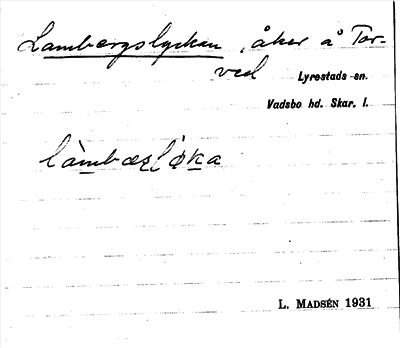 Lambergslyckan, åker å Tor-
ved
Lyrestads sn.
Vadsbo hd. Skar. l.
làmbæʂɭ ø̀ka
L. MADSÉN 1931